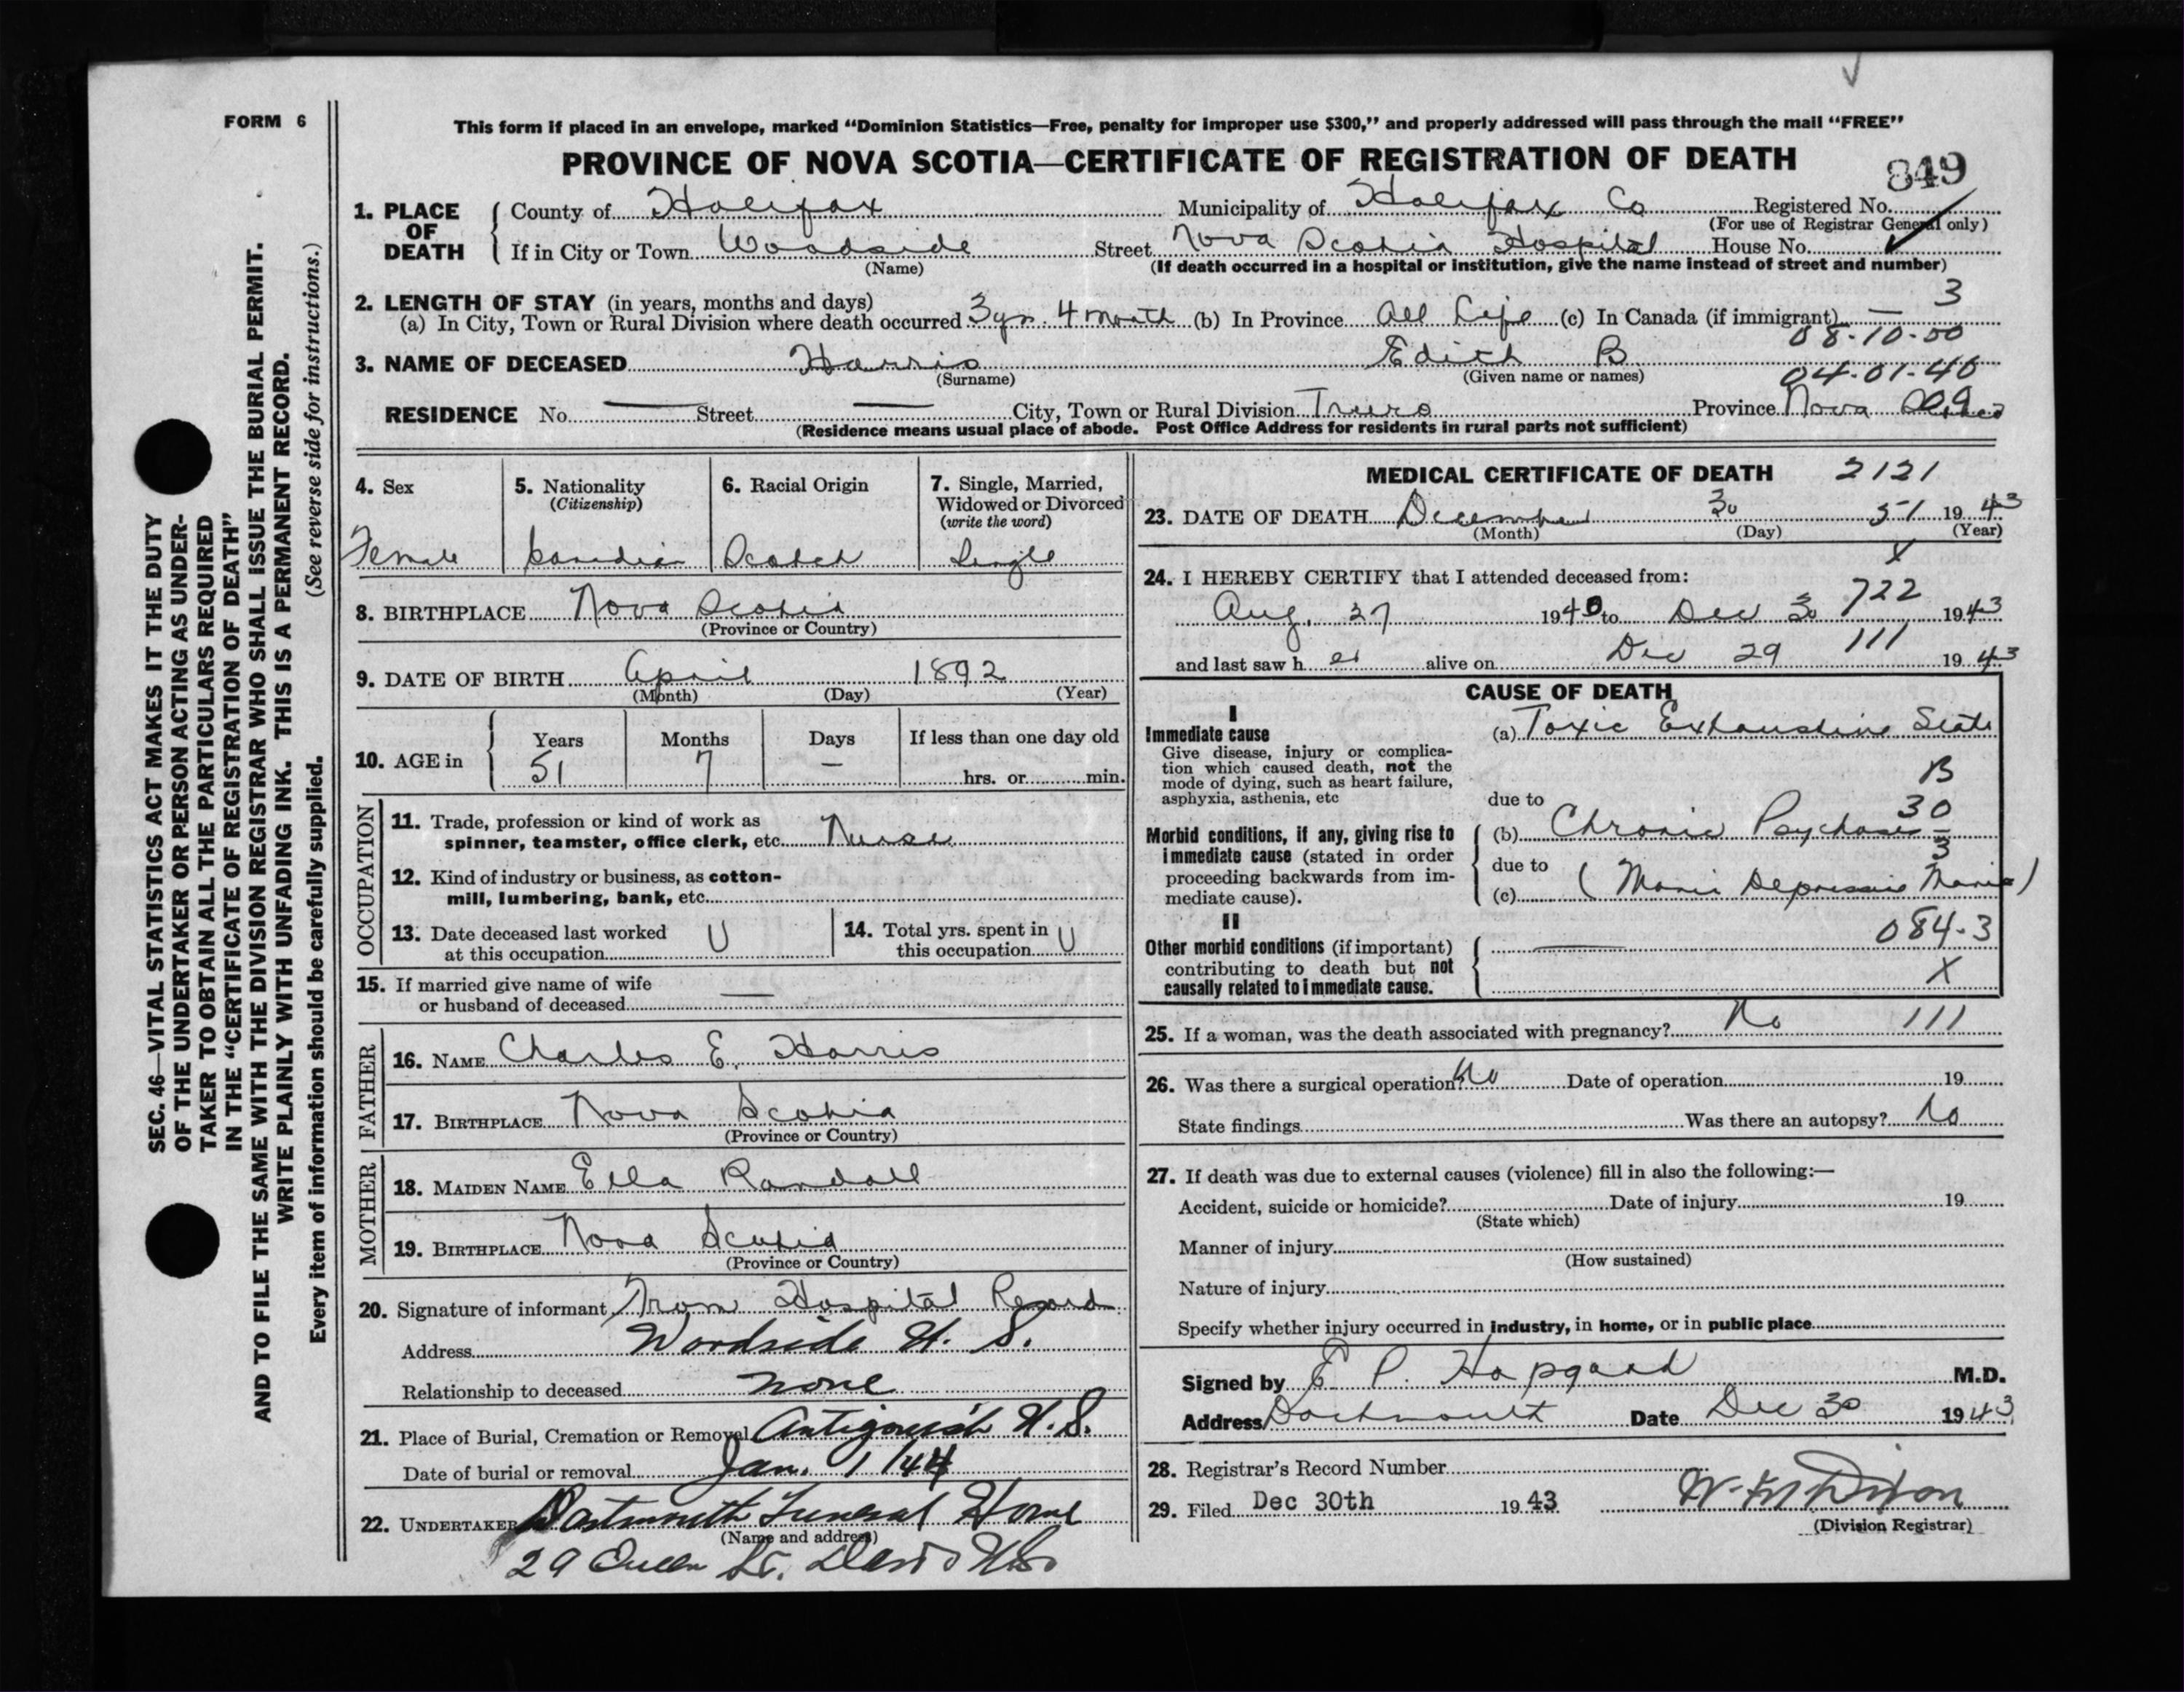 FORM 6
This form if placed in an envelope, marked “Dominion Statistics—Free, penalty for improper use $300,” and properly addressed will pass through the mail “FREE”
PROVINCE OF NOVA SCOTIA—CERTIFICATE OF REGISTRATION OF DEATH
849
1. PLACE OF DEATH County of Halifax Municipality of Halifax Co Registered No.
(For use of Registrar General only)
If in City or Town Woodside Street Nova Scotia Hospital House No.
(Name) (If death occurred in a hospital or institution, give the name instead of street and number)
2. LENGTH OF STAY (in years, months and days) 3
(a) In City, Town or Rural Division where death occurred 3 yrs. 4 month (b) In Province All Life (c) In Canada (if immigrant) —
08-10-00
3. NAME OF DECEASED Harris Edith B
(Surname) (Given name or names) 04-01-40
RESIDENCE No. — Street — City, Town or Rural Division Truro Province Nova Scotia
(Residence means usual place of abode. Post Office Address for residents in rural parts not sufficient)
4. Sex 5. Nationality (Citizenship) 6. Racial Origin 7. Single, Married, Widowed or Divorced (write the word)
Female Canadian Scotch Single
8. BIRTHPLACE Nova Scotia
(Province or Country)
9. DATE OF BIRTH April 1892
(Month) (Day) (Year)
10. AGE in Years Months Days If less than one day old
51 7 — hrs. or min.
OCCUPATION
11. Trade, profession or kind of work as
spinner, teamster, office clerk, etc. Nurse
12. Kind of industry or business, as cotton-
mill, lumbering, bank, etc.
13. Date deceased last worked at this occupation U 14. Total yrs. spent in this occupation U
15. If married give name of wife
or husband of deceased —
FATHER
16. NAME Charles E. Harris
17. BIRTHPLACE Nova Scotia
(Province or Country)
MOTHER
18. MAIDEN NAME Ella Randall
19. BIRTHPLACE Nova Scotia
(Province or Country)
20. Signature of informant From Hospital Record
Address Woodside N. S.
Relationship to deceased none
21. Place of Burial, Cremation or Removal Antigonish N.S.
Date of burial or removal Jan. 1/44
22. UNDERTAKER Dartmouth Funeral Home
(Name and address)
29 Queen St.
MEDICAL CERTIFICATE OF DEATH 2121
23. DATE OF DEATH December 30 51 1943
(Month) (Day) (Year)
X
24. I HEREBY CERTIFY that I attended deceased from:
Aug. 27 1940 to Dec 30 722 1943
and last saw her alive on Dec 29 111 1943
CAUSE OF DEATH
I
Immediate cause (a) Toxic Exhaustive State
Give disease, injury or complica-
tion which caused death, not the
mode of dying, such as heart failure,
asphyxia, asthenia, etc
B
due to 30
Morbid conditions, if any, giving rise to (b) Chronic Psychosis
immediate cause (stated in order
proceeding backwards from im-
mediate cause).
3
due to
(c) (Manic Depressive Mania)
II
Other morbid conditions (if important)
contributing to death but not
causally related to immediate cause.
— 084-3
X
25. If a woman, was the death associated with pregnancy? No 111
26. Was there a surgical operation? No Date of operation 19
State findings Was there an autopsy? No
27. If death was due to external causes (violence) fill in also the following:—
Accident, suicide or homicide? Date of injury 19
(State which)
Manner of injury
(How sustained)
Nature of injury
Specify whether injury occurred in industry, in home, or in public place
Signed by E P. Hopgood M.D.
Address Dartmouth Date Dec 30 1943
28. Registrar's Record Number
29. Filed Dec 30th 1943 W. Dixon
(Division Registrar)
SEC. 46—VITAL STATISTICS ACT MAKES IT THE DUTY
OF THE UNDERTAKER OR PERSON ACTING AS UNDER-
TAKER TO OBTAIN ALL THE PARTICULARS REQUIRED
IN THE “CERTIFICATE OF REGISTRATION OF DEATH”
AND TO FILE THE SAME WITH THE DIVISION REGISTRAR WHO SHALL ISSUE THE BURIAL PERMIT.
WRITE PLAINLY WITH UNFADING INK. THIS IS A PERMANENT RECORD.
Every item of information should be carefully supplied. (See reverse side for instructions.)